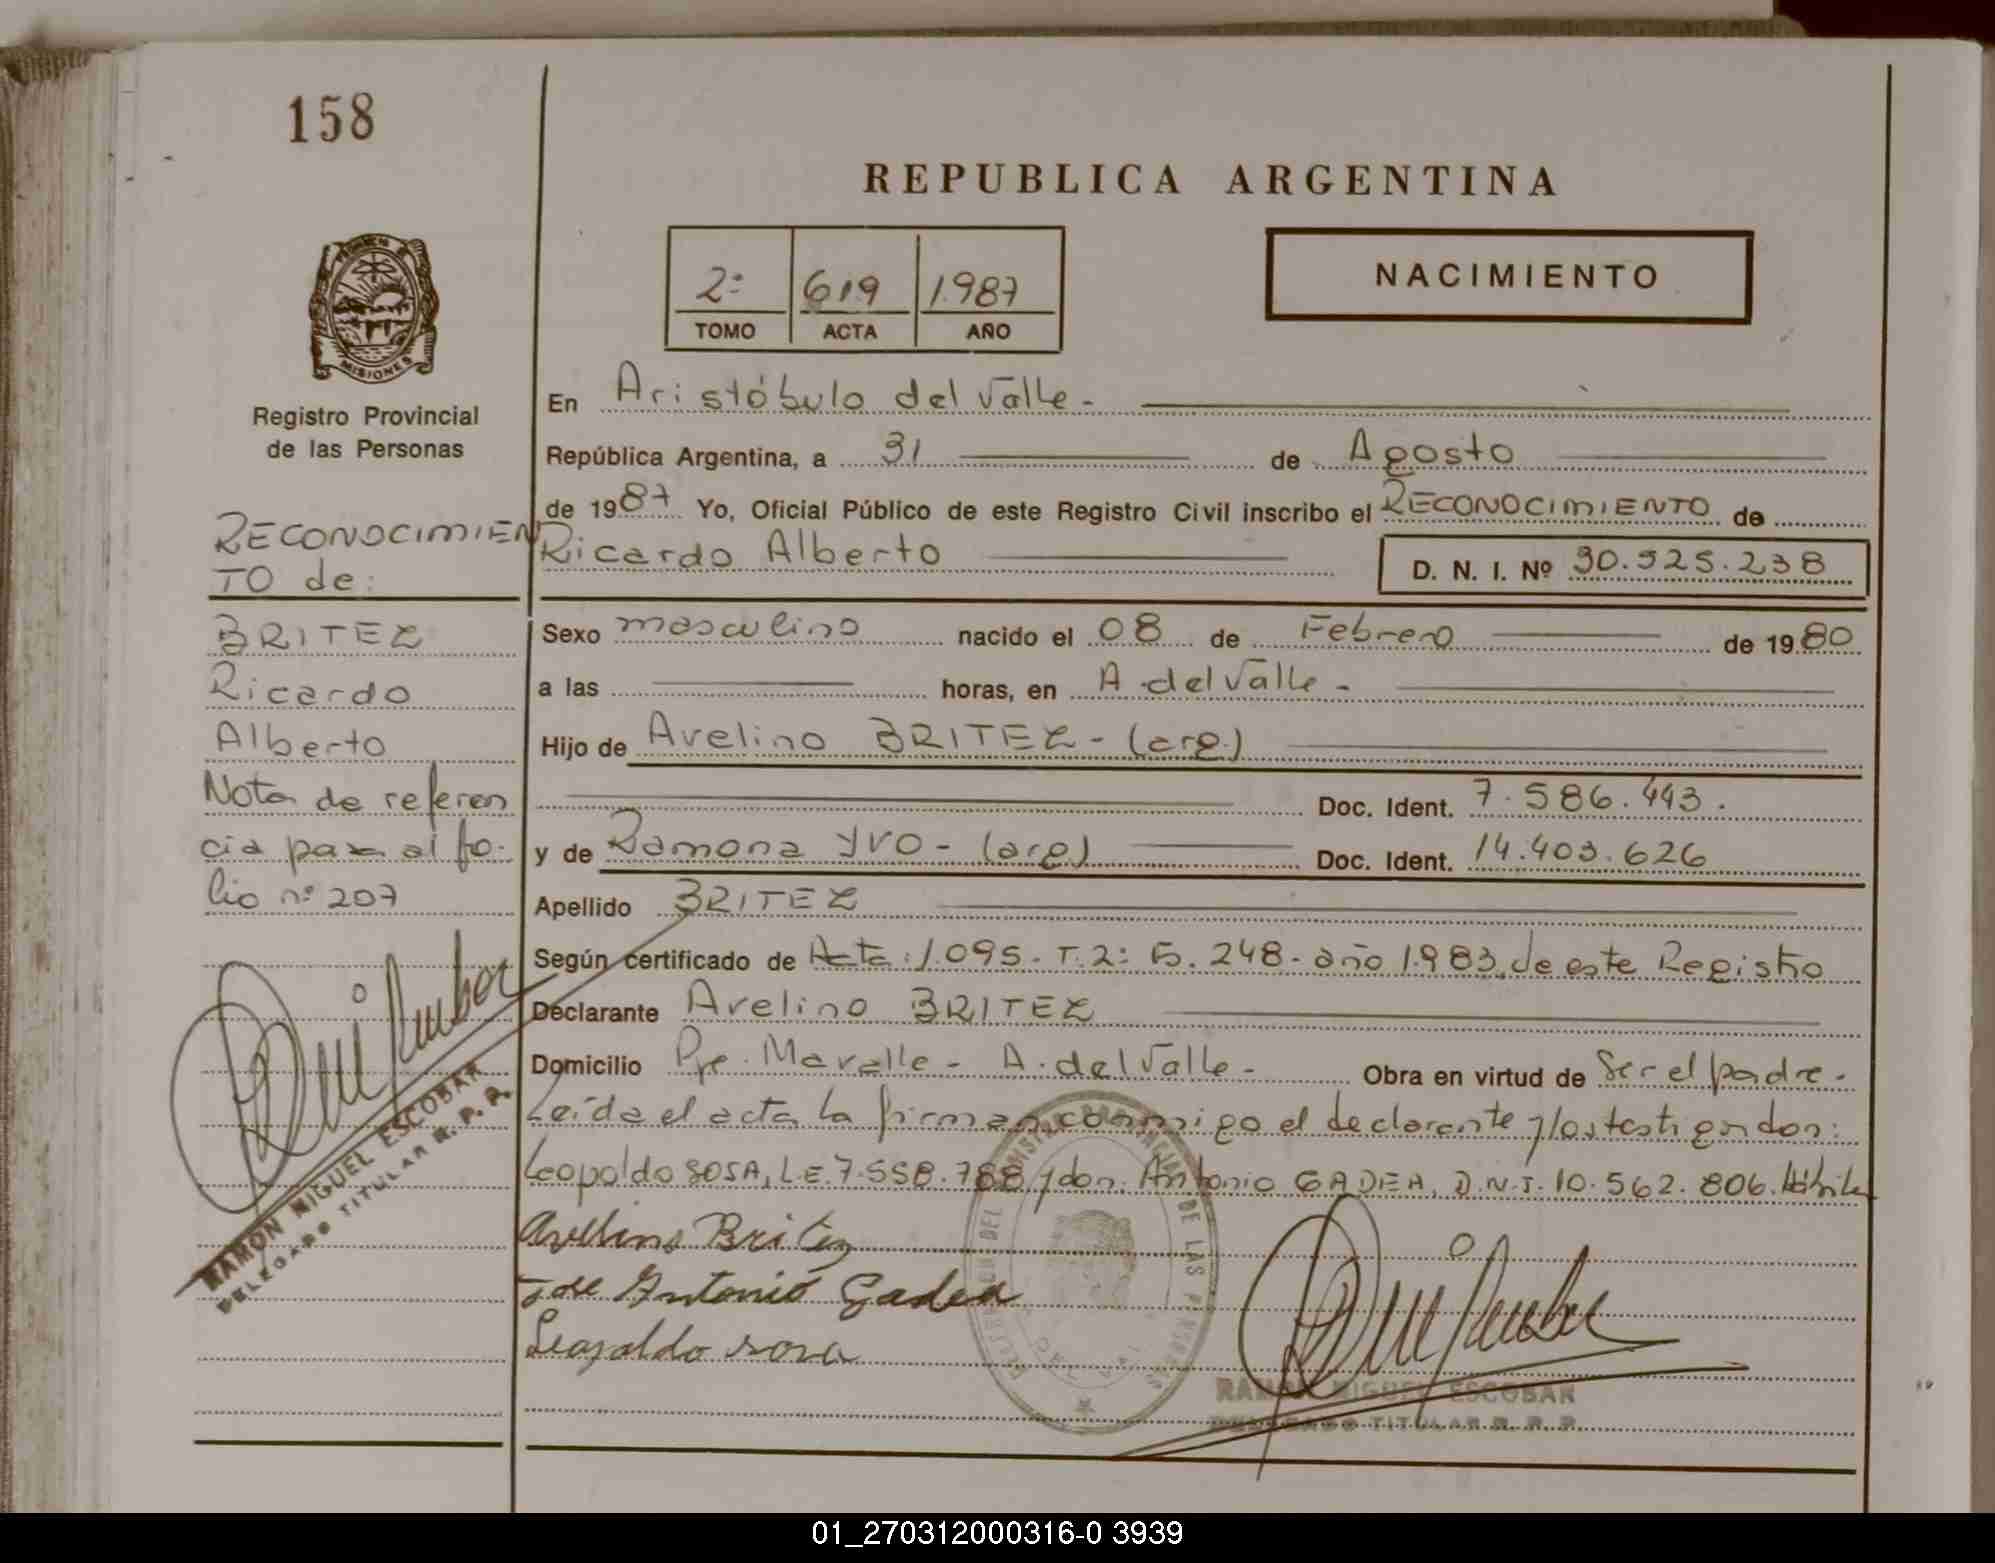 158
REPUBLICA ARGENTINA
2º 619 1987
TOMO ACTA AÑO
NACIMIENTO
MISIONES
Registro Provincial
de las Personas
RECONOCIMIEN
TO de:
BRITEZ
Ricardo
Alberto
Nota de referen
cia para al fo-
lio nº 207
RAMON MIGUEL ESCOBAR
DELEGADO TITULAR R. P. P.
En Aristóbulo del Valle -
República Argentina, a 31 de Agosto
de 1987 Yo, Oficial Público de este Registro Civil inscribo el RECONOCIMIENTO de
Ricardo Alberto D. N. I. Nº 30.525.238
Sexo masculino nacido el 08 de Febrero de 1980
a las horas, en A. del Valle -
Hijo de Avelino BRITEZ - (arg.)
Doc. Ident. 7.586.443.
y de Ramona YVO - (arg) Doc. Ident. 14.403.626
Apellido BRITEZ
Según certificado de Acta: 1.095. T. 2: 248. año 1.983 de este Registro
Declarante Avelino BRITEZ
Domicilio Pje. - A. del Valle - Obra en virtud de Ser el padre -
Leída el acta la firman conmigo el declarante y los testigos don:
Leopoldo SOSA, L.E. 7.558.788 y don: Antonio GADEA, D.N.I. 10.562.806. Hábiles
Avelino Britez
Jose Antonio Gadea
Leopoldo sosa
DE LAS PERSONAS
RAMON MIGUEL ESCOBAR
DELEGADO TITULAR R. P. P.
01_270312000316-0 3939